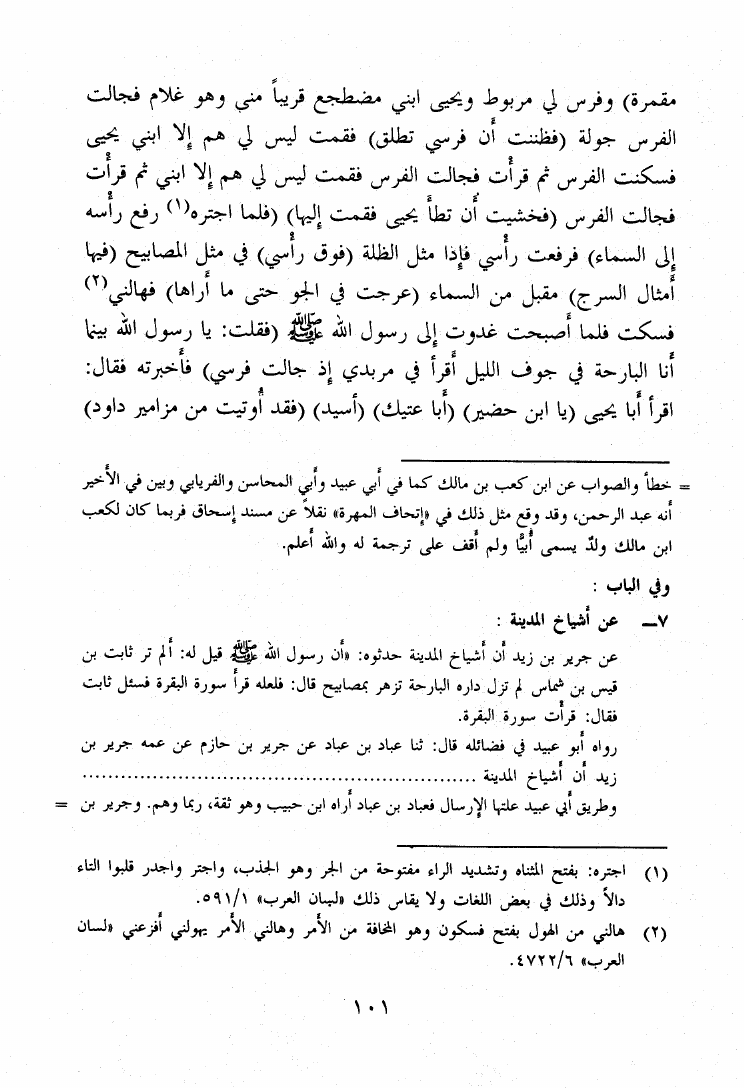 مقمرة) وفرس لي مربوط ويحيى ابني مضطجع قريباً مني وهو غلام فجالت
الفرس جولة (فظننت أن فرسي تطلق) فقمت ليس لي هم إلا ابني يحيى
فسكنت الفرس ثم قرأت فجالت الفرس فقمت ليس لي هم إلا ابني ثم قرأت
فجالت الفرس (فخشيت أن تطأ يحيى فقمت إليها) (فلما اجتره(١) رفع رأسه
إلى السماء) فرفعت رأسي فإذا مثل الظلة (فوق رأسي) في مثل المصابيح (فيها
أمثال السرج) مقبل من السماء (عرجت في الجو حتى ما أراها) فهالني(٢)
فسكت فلما أصبحت غدوت إلى رسول الله ﷺ (فقلت: يا رسول الله بينما
أنا البارحة في جوف الليل أقرأ في مربدي إذ جالت فرسي) فأخبرته فقال:
اقرأ أبا يحيى (يا ابن حضير) (أبا عتيك) (أسيد) (فقد أوتيت من مزامير داود)
= خطأ والصواب عن ابن كعب بن مالك كما في أبي عبيد وأبي المحاسن والفريابي وبين في الأخير
أنه عبد الرحمن، وقد وقع مثل ذلك في «إتحاف المهرة» نقلاً عن مسند إسحاق فربما كان لكعب
ابن مالك ولدٌ يسمى أبيًّا ولم أقف على ترجمة له والله أعلم.
وفي الباب :
٧ــ عن أشياخ المدينة :
عن جرير بن زيد أن أشياخ المدينة حدثوه: «أن رسول الله ﷺ قيل له: ألم تر ثابت بن
قيس بن شماس لم تزل داره البارحة تزهر بمصابيح قال: فلعله قرأ سورة البقرة فسئل ثابت
فقال: قرأت سورة البقرة.
رواه أبو عبيد في فضائله قال: ثنا عباد بن عباد عن جرير بن حازم عن عمه جرير بن
زيد أن أشياخ المدينة ............................................................
وطريق أبي عبيد علتها الإرسال فعباد بن عباد أراه ابن حبيب وهو ثقة، ربما وهم. وجرير بن =
(١) اجتره: بفتح المثناه وتشديد الراء مفتوحة من الجر وهو الجذب، واجتر واجدر قلبوا التاء
دالاً وذلك في بعض اللغات ولا يقاس ذلك «لسان العرب» ٥٩١/١.
(٢) هالني من الهول بفتح فسكون وهو المخافة من الأمر وهالني الأمر يهولني أفزعني «لسان
العرب» ٤٧٢٢/٦.
١٠١